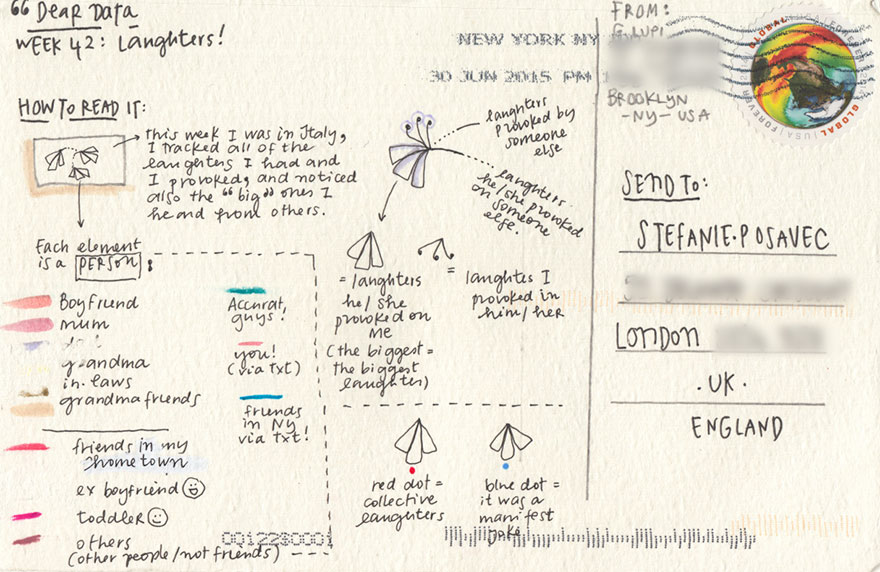 “ Dear Data
WEEK 42: Laughters!
HOW TO READ IT:
this week I was in Italy,
I tracked all of the
laughters I had and
I provoked, and noticed
also the “big” ones I
heard from others.
Each element
is a PERSON:
Boyfriend
mum
grandma
in-laws
grandma friends
friends in my
hometown
ex boyfriend
toddler
others
(other people/not friends)
Accurat
guys!
you!
(via txt)
friends
in NY
via txt!
laughters
provoked by
someone
else
laughters
he/she provoked
on someone
else.
= laughters
he/she
provoked on
me
(the biggest =
the biggest
laughter)
= laughters I
provoked in
him/her
red dot =
collective
laughters
blue dot =
it was a
manifest
joke
NEW YORK NY
30 JUN 2015 PM 1
FROM:
G. LUPI
BROOKLYN
-NY- USA
GLOBAL
USA
FOREVER
GLOBAL
SEND TO:
STEFANIE·POSAVEC
LONDON
·UK·
ENGLAND